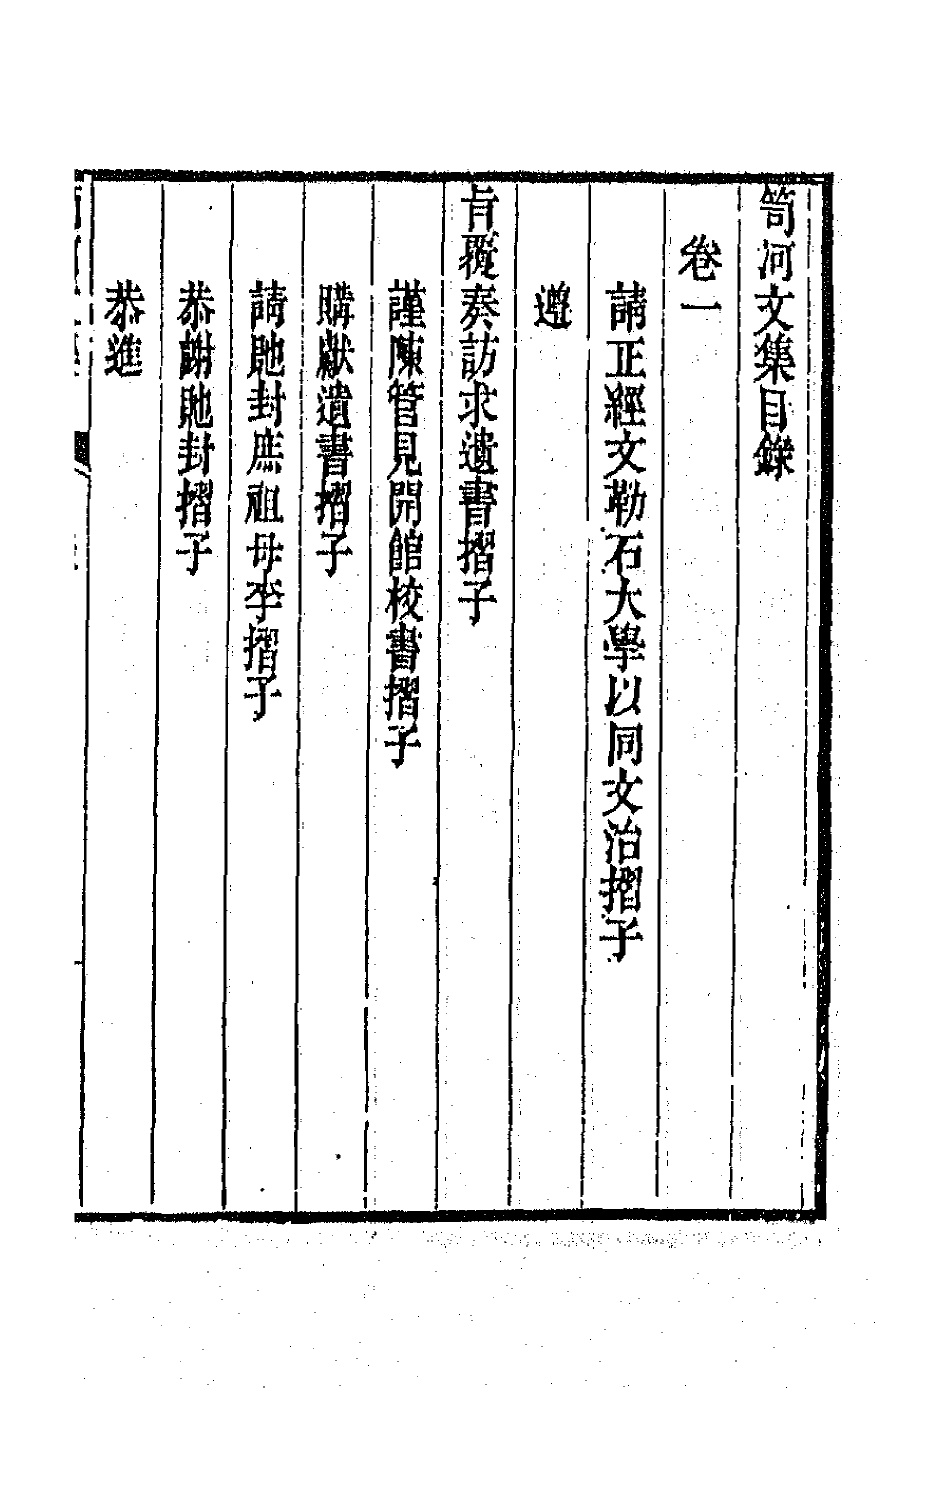 笥河文集目錄
卷一
請正經文勒石大學以同文治摺子
遵
旨覆奏訪求遺書摺子
謹陳管見開館校書摺子
購獻遺書摺子
請貤封庶祖母李摺子
恭謝貤封摺子
恭進